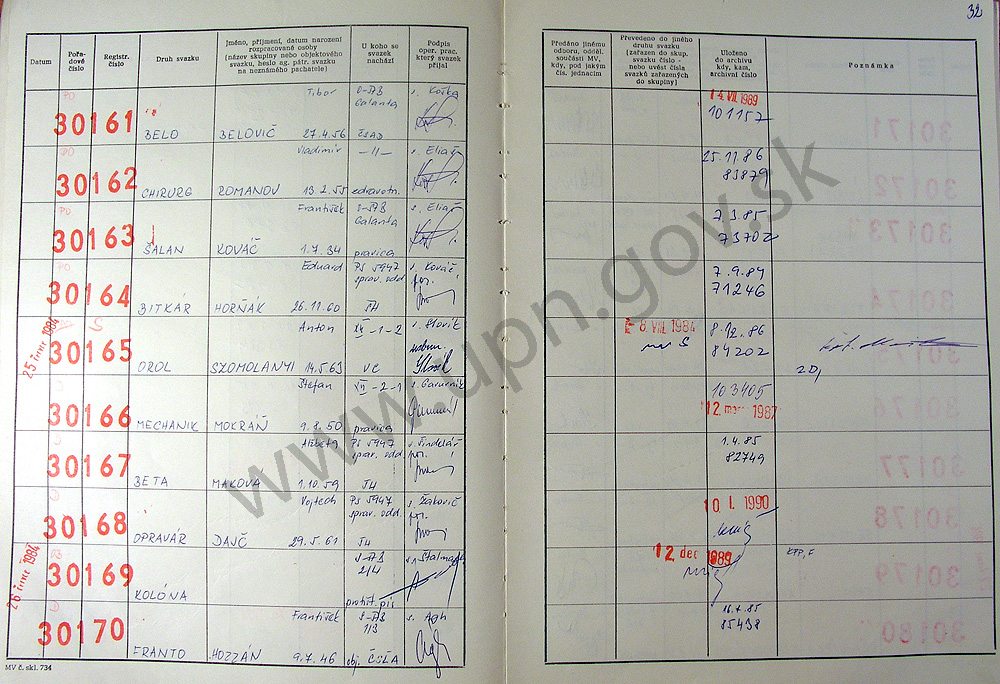 32
Datum
Pořadové číslo
Registr. číslo
Druh svazku
Jméno, příjmení, datum narození
rozpracované osoby
(název skupiny nebo objektového
svazku, heslo ag. pátr. svazku
na neznámého pachatele)
U koho se
svazek
nachází
Podpis
oper. prac.
který svazek
přijal
Předáno jinému
odboru, odděl.
součásti MV,
kdy, pod jakým
čís. jednacím
Převedeno do jiného
druhu svazku
(zařazen do skup.
svazku číslo -
nebo uvést čísla
svazků zařazených
do skupiny)
Uloženo
do archivu
kdy, kam,
archivní číslo
Poznámka
PO Tibor Galanta
30161 BELO BELOVIČ 27.4.56 ČSAD
14. VII. 1989
101157
PO Vladimír -11- s. Eliaš
30162 CHIRURG ROMANOV 13.2.55 zdravotn.
25.11.86
83879
PO František Galanta s. Eliaš
30163 ŠALAN KOVÁČ 1.7.34 pravica
7.3.85
73702
PO Eduard PS 5947 s. Kováč
správ. odd. por.
30164 BITKÁR HORŇÁK 26.11.60 TH
7.9.84
71246
25 června 1984
S Anton XII-1-2 s. Slovík
30165 OROL SZOMOLANYI 14.5.63 VC
8. VIII. 1984
8.12.86
84202
Štefan VII-2-1
30166 MECHANIK MOKRÁŇ 9.1.50 pravica
103405
12. 1987
Alžbeta PS 5947 s. Šindelář
správ. odd. por.
30167 BETA MAKOVÁ 1.10.59 TH
1.4.85
82749
Vojtech PS 5947 s. Žákovič
správ. odd. por.
30168 OPRAVÁR DAJČ 29.5.61 TH
10. I. 1990
26 června 1984
2/4
30169 KOLÓNA
12. dec 1989
František s. Agh
1/3
30170 FRANTO HOZZÁN 9.7.46 obj. ČSĽA
16.4.85
85438
MV č. skl. 734
www.upn.gov.sk